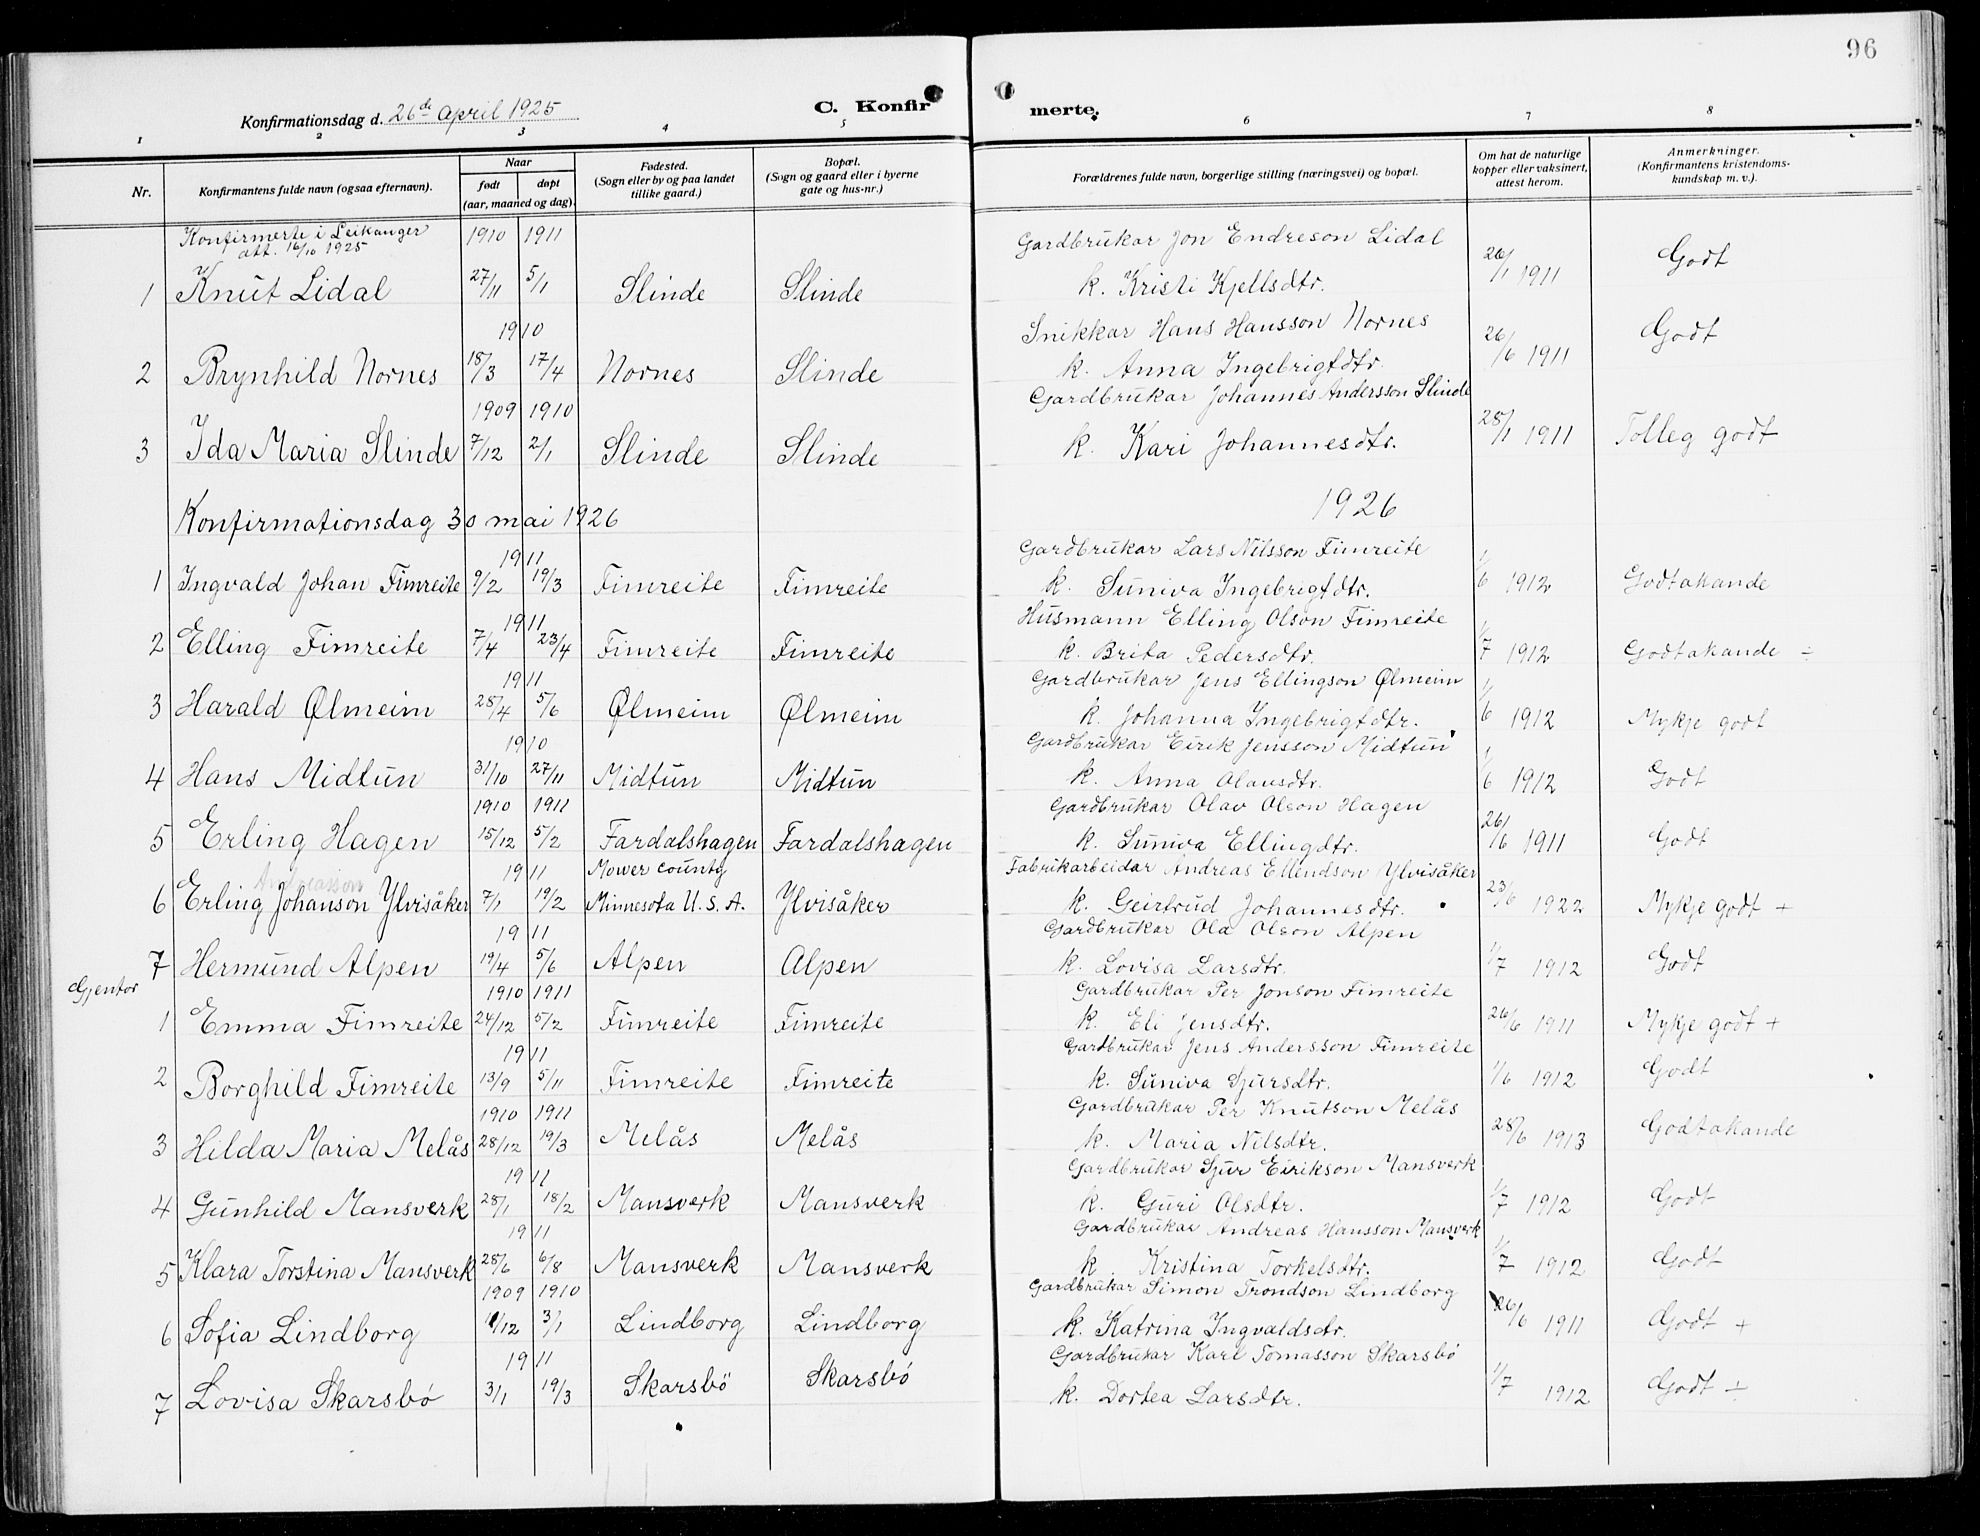 96
Konfirmationsdag d. 26de April 1925
C. Konfirmerte.
1 2 3 4 5 6 7 8
Nr.
Konfirmantens fulde navn (ogsaa efternavn).
Naar
født døpt
(aar, maaned og dag).
Fødested.
(Sogn eller by og paa landet
tillike gaard.)
Bopæl.
(Sogn og gaard eller i byerne
gate og hus-nr.)
Forældrenes fulde navn, borgerlige stilling (næringsvei) og bopæl.
Om hat de naturlige
kopper eller vaksinert,
attest herom.
Anmerkninger.
(Konfirmantens kristendoms-
kundskap m. v.).
Konfirmerte i Leikanger
att. 16/10 1925
1910 1911 Gardbrukar Jon Endreson Lidal
1 Knut Lidal 27/11 5/1 Slinde Slinde k. Kristi Kjellsdtr. 26/1 1911 Godt
1910 Snikkar Hans Hansson Nornes
2 Brynhild Nornes 18/3 17/4 Nornes Slinde k. Anna Ingebrigtdtr. 26/6 1911 Godt
1909 1910 Gardbrukar Johannes Andersson Slinde
3 Ida Maria Slinde 7/12 2/1 Slinde Slinde k. Kari Johannesdtr. 28/1 1911 Tolleg godt
Konfirmationsdag 30 mai 1926 1926
1911 Gardbrukar Lars Nilsson Fimreite
1 Ingvald Johan Fimreite 9/2 19/3 Fimreite Fimreite k. Suniva Ingebrigtdtr. 1/6 1912 Godtakande
1911 Husmann Elling Olson Fimreite
2 Elling Fimreite 7/4 23/4 Fimreite Fimreite k. Brita Pedersdtr. 1/7 1912 Godtakande ÷
1911 Gardbrukar Jens Ellingson Ølmeim
3 Harald Ølmeim 28/4 5/6 Ølmeim Ølmeim k. Johanna Ingebrigtdtr. 1/6 1912 Mykje godt
1910 Gardbrukar Eirik Jensson Midtun
4 Hans Midtun 31/10 27/11 Midtun Midtun k. Anna Olavsdtr. 1/6 1912 Godt
1910 1911 Gardbrukar Olav Olson Hagen
5 Erling Hagen 15/12 5/2 Fardalshagen Fardalshagen k. Suniva Ellingdtr. 26/6 1911 Godt
1911 Mower county Fabrikarbeidar Andreas Ellendson Ylvisåker
Andreasson
6 Erling Johanson Ylvisåker 7/1 19/2 Minnesota U.S.A. Ylvisåker k. Geirtrud Johannesdtr. 23/6 1922 Mykje godt +
1911 Gardbrukar Ola Olson Alpen
7 Hermund Alpen 19/4 5/6 Alpen Alpen k. Lovisa Larsdtr. 1/7 1912 Godt
Gjentor
1910 1911 Gardbrukar Per Jonson Fimreite
1 Emma Fimreite 24/12 5/2 Fimreite Fimreite k. Eli Jensdtr. 26/6 1911 Mykje godt +
1911 Gardbrukar Jens Andersson Fimreite
2 Borghild Fimreite 13/9 5/11 Fimreite Fimreite k. Suniva Sjursdtr. 1/6 1912 Godt
1910 1911 Gardbrukar Per Knutson Melås
3 Hilda Maria Melås 28/12 19/3 Melås Melås k. Maria Nilsdtr. 28/6 1913 Godtakande
1911 Gardbrukar Sjur Eirikson Mansverk
4 Gunhild Mansverk 28/1 18/2 Mansverk Mansverk k. Guri Olsdtr. 1/7 1912 Godt
1911 Gardbrukar Andreas Hansson Mansverk
5 Klara Torstina Mansverk 28/6 6/8 Mansverk Mansverk k. Kristina Torkelsdtr. 1/7 1912 Godt
1909 1910 Gardbrukar Simon Trondson Lindborg
6 Sofia Lindborg 11/12 3/1 Lindborg Lindborg k. Katrina Ingvaldsdtr. 26/6 1911 Godt +
1911 Gardbrukar Karl Tomasson Skarsbö
7 Lovisa Skarsbö 3/1 19/3 Skarsbö Skarsbö k. Dortea Larsdtr. 1/7 1912 Godt ÷